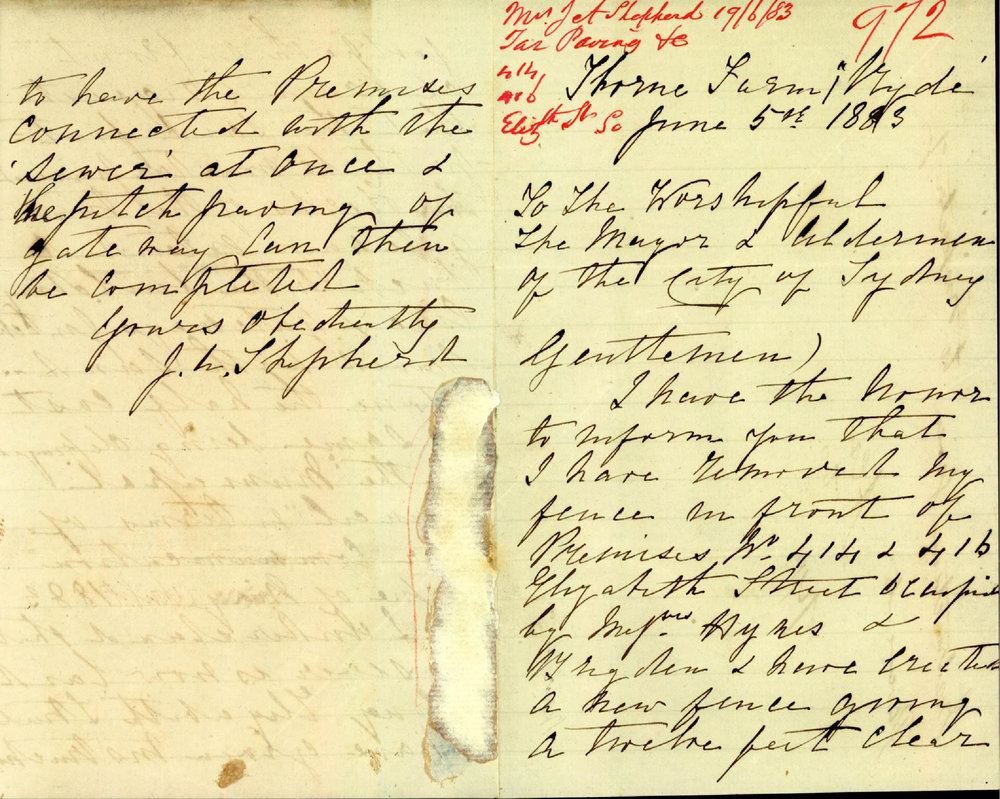 Mr. J A Shepherd 19/6/83
Tar Paving &c
414
416
Elizth St. So
972
Thorne Farm, Ryde
June 5th 1883
To The Worshipful
The Mayor & Aldermen
of the City of Sydney
Gentlemen)
I have the honor
to inform you that
I have removed my
fence in front of
Premises No 414 & 416
Elizabeth Street occupied
by Messrs Hynes &
Brigden & have erected
a new fence giving
a twelve feet clear
to have the Premises
connected with the
'sewer' at once &
the pitch paving of
gate way can then
be completed
Yours obediently
J. A. Shepherd